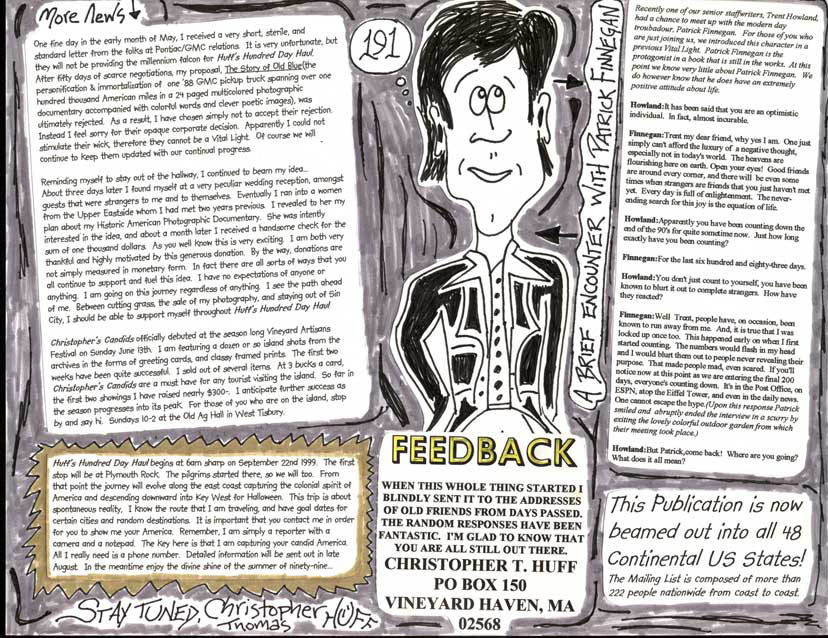 More News
One fine day in the early month of May, I received a very short, sterile, and
standard letter from the folks at Pontiac/GMC relations. It is very unfortunate, but
they will not be providing the millenium falcon for Huff's Hundred Day Haul.
After fifty days of scarce negotiations, my proposal, The Story of Old Blue(the
personsification & immortalization of one '88 GMC pickup truck spanning over one
hundred thousand American miles in a 24 paged multicolored photographic
documentary accompanied with colorful words and clever poetic images), was
ultimately rejected. As a result, I have chosen simply not to accept their rejection.
Instead I feel sorry for their opaque corporate decision. Apparently I could not
stimulate their wick, therefore they cannot be a Vital Light. Of course we will
continue to keep them updated with our continual progress.
Reminding myself to stay out of the hallway, I continued to beam my idea...
About three days later I found myself at a very peculiar wedding reception, amongst
guests that were strangers to me and to themselves. Eventually I ran into a women
from the Upper Eastside whom I had met two years previous. I revealed to her my
plan about my Historic American Photographic Documentary. She was intently
interested in the idea, and about a month later I received a handsome check for the
sum of one thousand dollars. As you well know this is very exciting. I am both very
thankful and highly motivated by this generous donation. By the way, donations are
not simply measured in monetary form. In fact there are all sorts of ways that you
all continue to support and fuel this idea. I have no expectations of anyone or
anything. I am going on this journey regardless of anything. I see the path ahead
of me. Between cutting grass, the sale of my photography, and staying out of Sin
City, I should be able to support myself throughout Huff's Hundred Day Haul
Christopher's Candids officially debuted at the season long Vineyard Artisans
Festival on Sunday June 13th. I am featuring a dozen or so island shots from the
archives in the forms of greeting cards, and classy framed prints. The first two
weeks have been quite successful. I sold out of several items. At 3 bucks a card,
Christopher's Candids are a must have for any tourist visiting the island. So far in
the first two showings I have raised nearly $300-. I anticipate further success as
the season progresses into its peak. For those of you who are on the island, stop
by and say hi. Sundays 10-2 at the Old Ag Hall in West Tisbury.
Huff's Hundred Day Haul begins at 6am sharp on September 22nd 1999. The first
stop will be at Plymouth Rock. The pilgrims started there, so we will too. From
that point the journey will evolve along the east coast capturing the colonial spirit of
America and descending downward into Key West for Halloween. This trip is about
spontaneous reality, I know the route that I am traveling, and have goal dates for
certain cities and random destinations. It is important that you contact me in order
for you to show me your America. Remember, I am simply a reporter with a
camera and a notepad. The key here is that I am capturing your candid America.
All I really need is a phone number. Detailed information will be sent out in late
August. In the meantime enjoy the divine shine of the summer of ninety-nine...
STAY TUNED, Christopher
Thomas HUFF
191
FEEDBACK
WHEN THIS WHOLE THING STARTED I
BLINDLY SENT IT TO THE ADDRESSES
OF OLD FRIENDS FROM DAYS PASSED.
THE RANDOM RESPONSES HAVE BEEN
FANTASTIC. I'M GLAD TO KNOW THAT
YOU ARE ALL STILL OUT THERE.
CHRISTOPHER T. HUFF
PO BOX 150
VINEYARD HAVEN, MA
02568
A BRIEF ENCOUNTER WITH PATRICK FINNEGAN
Recently one of our senior staffwriters, Trent Howland,
had a chance to meet up with the modern day
troubadour, Patrick Finnegan. For those of you who
are just joining us, we introduced this character in a
previous Vital Light. Patrick Finnegan is the
protagonist in a book that is still in the works. At this
point we know very little about Patrick Finnegan. We
do however know that he does have an extremely
positive attitude about life.
Howland:It has been said that you are an optimistic
individual. In fact, almost incurable.
Finnegan:Trent my dear friend, why yes I am. One just
simply can't afford the luxury of a negative thought,
especially not in today's world. The heavens are
flourishing here on earth. Open your eyes! Good friends
are around every corner, and there will be even some
times when strangers are friends that you just haven't met
yet. Every day is full of enlightenment. The never-
ending search for this joy is the equation of life.
Howland:Apparently you have been counting down the
end of the 90's for quite sometime now. Just how long
exactly have you been counting?
Finnegan:For the last six hundred and eighty-three days.
Howland:You don't just count to yourself, you have been
known to blurt it out to complete strangers. How have
they reacted?
Finnegan:Well Trent, people have, on occasion, been
known to run away from me. And, it is true that I was
locked up once too. This happened early on when I first
started counting. The numbers would flash in my head
and I would blurt them out to people never revealing their
purpose. That made people mad, even scared. If you'll
notice now at this point as we are entering the final 200
days, everyone's counting down. It's in the Post Office, on
ESPN, stop the Eiffel Tower, and even in the daily news.
One cannot escape the hype.(Upon this response Patrick
smiled and abruptly ended the interview in a scurry by
exiting the lovely colorful outdoor garden from which
their meeting took place.)
Howland:But Patrick,come back! Where are you going?
What does it all mean?
This Publication is now
beamed out into all 48
Continental US States!
The Mailing List is composed of more than
222 people nationwide from coast to coast.